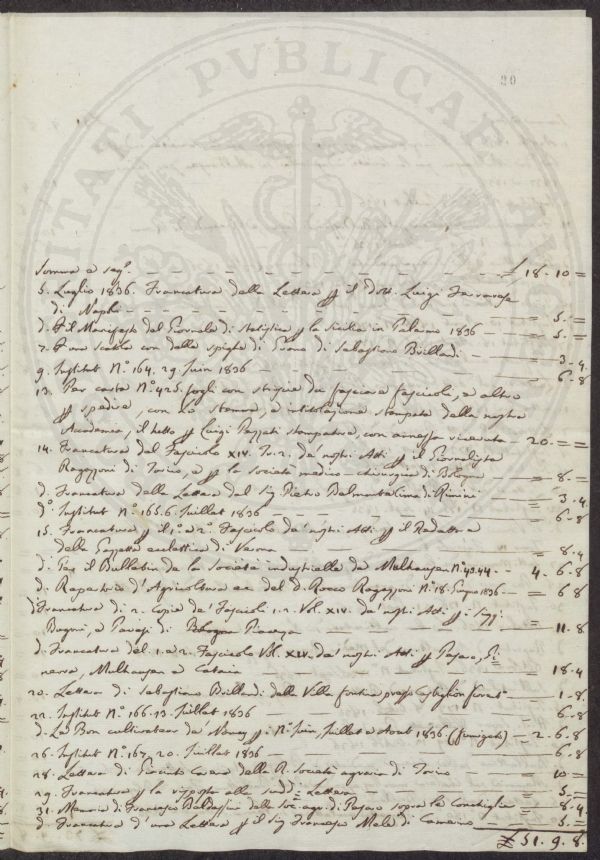 20
Somma e seg.e — — — — — £ 18 - 10 =
5. Luglio 1836. Francatura della Lettera p il Dott. Luigi Ferrarese
di Napoli — — — = 5. =
d. p il Manifesto del Giornale di Statistica p la Sicilia in Palermo 1836 — = 5. =
7. p uno scatolo con delle spighe di Grano di Sebastiano Brillandi — 3. 4.
9. Institut N.o 164. 29. Juin 1836 — 6. 8
13. Per carta N.o 425. fogli con strigie da fasciare fascicoli, e altro
p spedire, con lo stemma, e intitolazione stampata della nostra
Accademia, il tutto p Luigi Pezzati stampatore, con annessa ricevuta — 20. = =
14. Francatura del Fascicolo XIV. Tr. 2. de' nostri Atti p il Giornalista
Ragazzoni di Torino, e p la società medico-chirurgica di Bologna — = 8. =
d. Francatura della Lettera del Sig Pietro Balmontatima di Rimini — = 3. 4
d.o Institut N.o 165. 6. Juillet 1836 — 6. 8
15. Francatura p il 1.o e 2.o Fascicolo de' nostri Atti p il Redattore
della Gazzetta eclettica di Verona — = 8. 4
d. Per il Bulletin de la Società industrielle de Melhausen N.o 43.44 — 4. 6. 8
d. Repertorio d'Agricoltura ec del d. Rocco Ragazzoni N.o 18. Giugno 1836 — = 6 8
d Francatura di 2. Copie de' Fascicoli 1. 2. Vol. XIV. de' nostri Atti p i Sigg:
Bugoni, e Pavesi di Bologna Piacenza — 11. 8
d. Francatura del 1. e 2. Fascicolo Vol. XIV. de' nostri Atti p Pesaro, Gi
nevra, Melhausen e Catania — 18. 4
20. Lettera di Sebastiano Brillandi dalla Villa presso Castiglion — 1. 8.
22. Institut N.o 166. 13. Juillet 1836 — 6. 8
d. Le Bon cultivateur de Nancy p N.o Juin, Juillet e Aout 1836. — 2. 6. 8
26. Institut N.o 167. 20. Juillet 1836 — 6. 8
28. Lettera di Cesare della R. società agraria di Torino — 10 =
29. Francatura p la risposta alla sudd.a Lettera — = 5. =
31. Memoria di Francesco Baldassini della Soc. agr. di Pesaro sopra le Conchiglie — = 8. 4.
d. Francatura d'una Lettera p il Sig Francesco Mele di Camerino — = 5. =
£ 51. 9. 8.